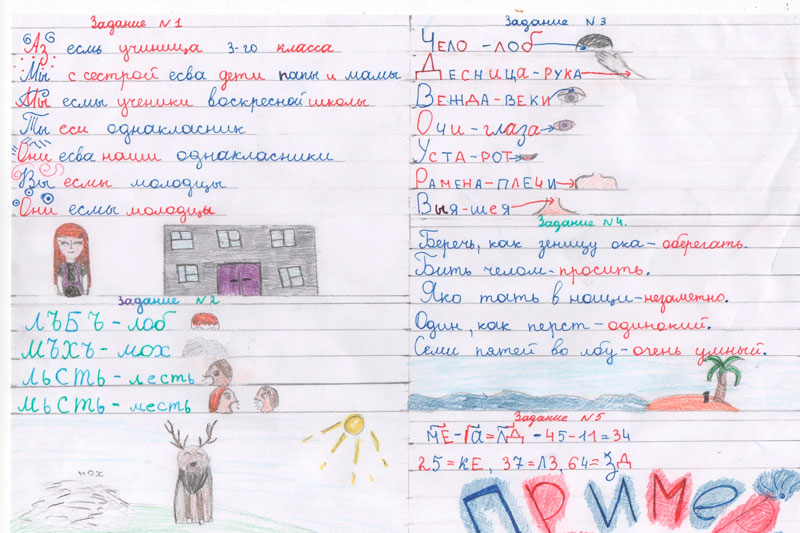 Задание №1
Аз есмь учиница 3-го класса
Мы с сестрой есва дети папы и мамы
Мы есмы ученики воскресной школы
Ты еси однакласник
Они есва наши однакласники
Вы есмы молодцы
Они есмы молодцы
Задание №2
ЛЪБЪ-лоб
МЪХЪ-мох
ЛЬСТЬ-лесть
МЬСТЬ-месть
мох
Задание №3
Чело-лоб
Десница-рука
Вежда-веки
Очи-глаза
Уста-рот
Рамена-плечи
Выя-шея
Задание №4.
Беречь, как зеницу ока-оберегать.
Бить челом-просить.
Яко тать в нощи-незаметно.
Один, как перст-одинокий.
Семи пятей во лбу-очень умный.
Задание №5
МЕ-ГА=ЛД -45-11=34
25=КЕ, 37=ЛЗ, 64=ѮД
ПРИМЕ